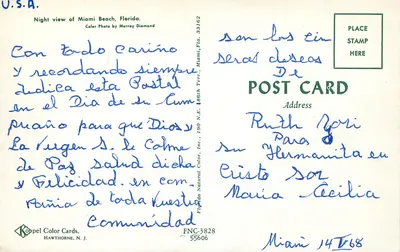 U.S.A.
Night view of Miami Beach, Florida.
Color Photo by Murray Diamond
Con todo cariño
y recordando siempre
dedica esta Postal
en el Dia de su Cum
pruaño para que Dios y
La Vergen S. le Colme
de Paz salud dicha
y Felicidad. en com
pañia de toda Vuestra
Comunidad
son los cin
seros deseos
De
PLACE
STAMP
HERE
POST CARD
Address
Ruth Yori
Para
su Hermanita en
Cristo Sor
Maria Cecilia
Miami 14 V 68
Koppel Color Cards,
HAWTHORNE, N. J.
FNC-3828
55606
Florida Natural Color, Inc., Miami, Fla. 33162